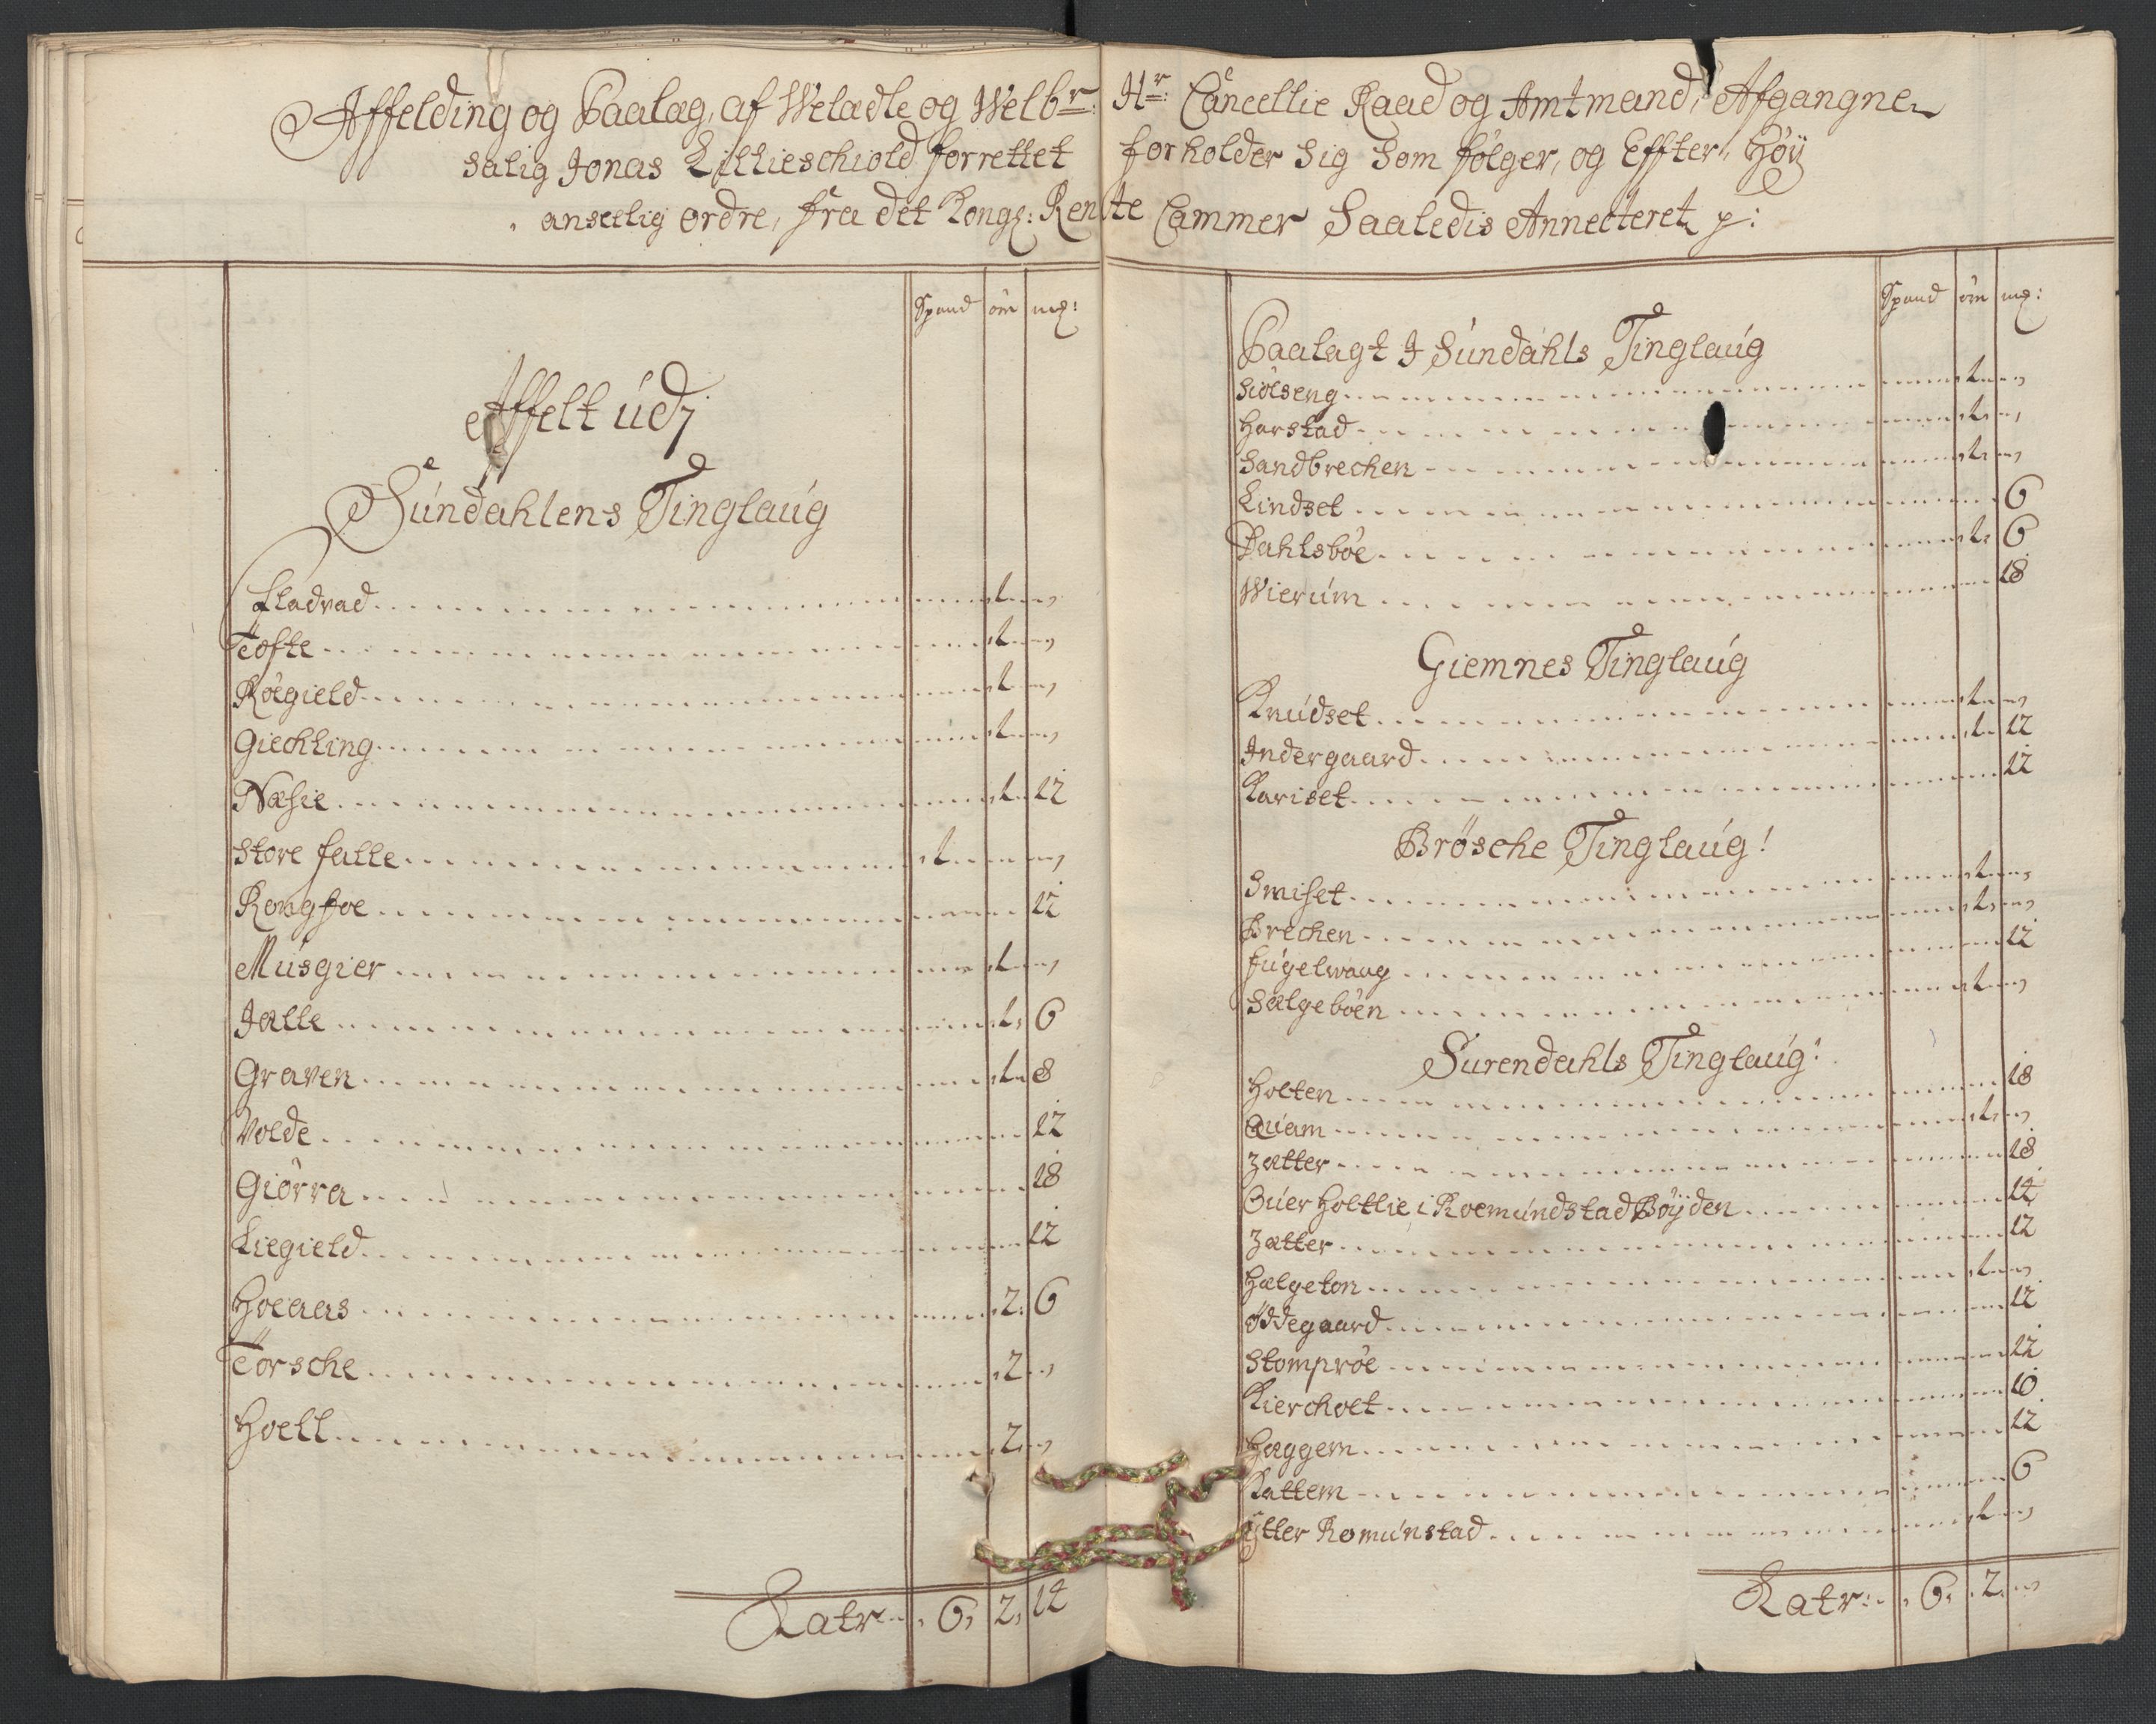 Affelding og Paalag, af Welædle og Welbr: Hr: Cancellie Raad og Amtmand, Afgangne
salig Jonas Lillieschiold forrettet forholder sig som følger, og Effter, Høy
anseelig ordre, fra det Kongl: Rente Cammer Saaledis Annecteret
Spand øre mg:
Affelt udj
Sundahlens Tinglaug
Fladvad 1
Tofte 1
Røegield 1
Giechling 1
Næsie 1 12
Store falle 1
Rongfoe 12
Musgier 1
Jælle 1 6
Graven 1 8
Volde 12
Giørra 18
Liegield 12
Hoeaas 2 6
Torsche 2
Hoell 2
Latr 6 2 14
Spand øre mg:
Paalagt I Sundahls Tinglaug
Siølseng 1
Harstad 1
Sandbrechen 1
Lindset 6
Dahlsbøe 1 6
Wierum 18
Giemnes Tinglaug
Knudset 1
Indergaard 1 12
Kariset 12
Brøsche Tinglaug
Smiset 1
Brechen 1
Fugelwaag 12
Sælgebøen 1
Surendahls Tinglaug
Holten 18
Quam 1
Zætter 18
Øuer Holtlie i Roemundstad Bøyden 14
Zætter 12
Hælgeton 1
Øddegaard 12
Stomprøe 12
Kiercholt 10
Hæggem 12
Kattem 6
Ytter Romunstad 1
Latr: 6 2